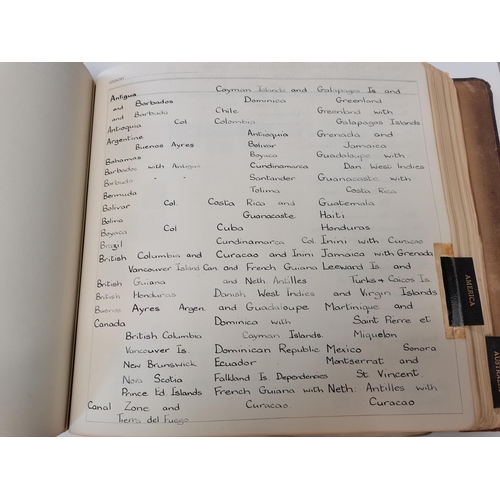 Antigua
and Barbados
and Barbuda
Antioquia Col.
Argentine
Buenos Ayres
Bahamas
Barbados with Antigua
Barbuda " "
Bermuda
Bolivar Col.
Bolivia
Boyaca Col
Brazil
British Columbia and
Vancouver Island Can
British Guiana
British Honduras
Buenos Ayres Argen.
Canada
British Columbia
Vancouver Is.
New Brunswick
Nova Scotia
Prince Ed Islands
Canal Zone and
Tierra del Fuego
Cayman Islands and
Dominica
Chile
Colombia
Antioquia
Bolivar
Boyaca
Cundinamarca
Santander
Tolima
Costa Rica and
Guanacaste
Cuba
Cundinamarca Col.
Curacao and Inini
and French Guiana
and Neth. Antilles
Danish West Indies
and Guadaloupe
Dominica with
Cayman Islands.
Dominican Republic
Ecuador
Falkland Is. Dependencies
French Guiana with
Curacao
Galapagos Is and
Greenland
Greenland with
Galapagos Islands
Grenada and
Jamaica
Guadaloupe with
Dan West Indies
Guanacaste with
Costa Rica
Guatemala
Haiti
Honduras
Inini with Curacao
Jamaica with Grenada
Leeward Is. and
Turks & Caicos Is.
and Virgin Islands
Martinique and
Saint Pierre et
Miquelon
Mexico Sonora
Montserrat and
St. Vincent
Neth: Antilles with
Curacao
AMERICA